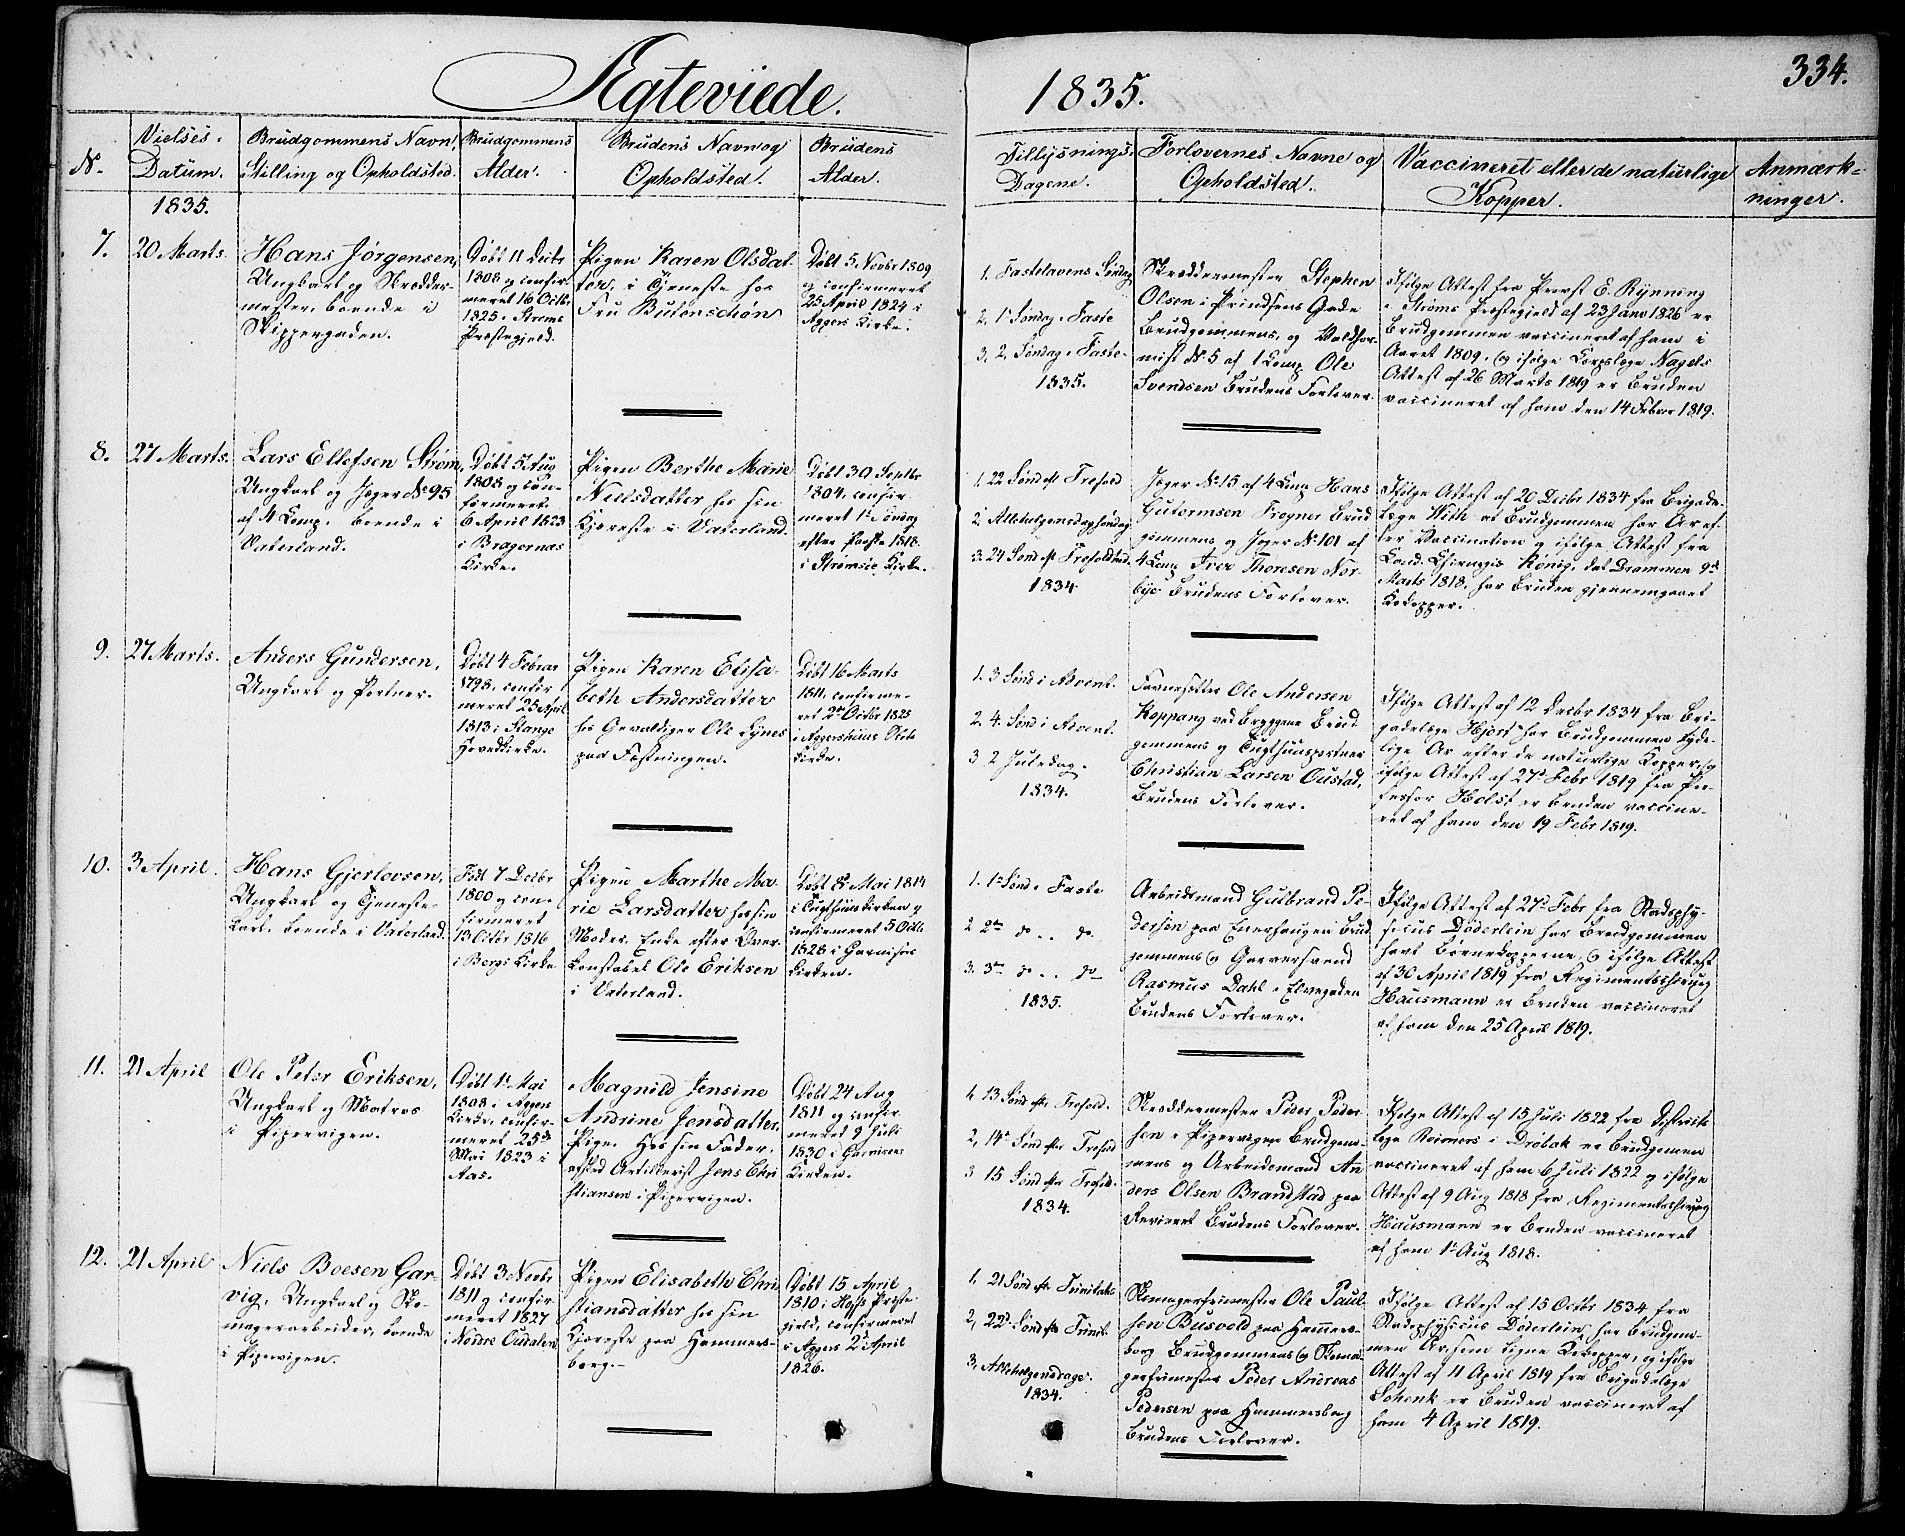 Ægteviede.
1835.
334.
N.
Vielses-
Datum.
Brudgommens Navn,
Stilling og Opholdsted.
Brudgommens
Alder.
Brudens Navn og
Opholdsted.
Brudens
Alder.
Tillysnings-
Dagene.
Forlovernes Navne og
Opholdsted.
Vaccineret eller de naturlige
Kopper.
Anmærk-
ninger.
1835.
7.
20 Marts.
Hans Jørgensen,
Ungkarl og Skrædder-
mester, boende i
Skippergaden.
Døbt 11 Decbr
1808 og confir-
meret 16 Octbr
1825 i Strøms
Præstegjeld.
Pigen Karen Olsdat-
ter, i Tjeneste hos
Fru Butenschøn
Døbt 5 Novbr 1809
og confirmeret
25 April 1824 i
Aggers Kirke.
1. Fastelavens Søndag
2, 1ste Søndag i Faste
3, 2, Søndag i Faste-
1835.
Skræddermester Stephen
Olsen i Prindsens Gade
Brudgommens, og Valdhor-
nist N. 5 af 1 Comp Ole
Svendsen Brudens Forlover.
Ifølge Attest fra Provst E. Rynning
i Strøms Præstegjeld af 23 Janv 1826 er
Brudgommen vaccineret af ham i
Aaret 1809, og ifølge Corpslæge Nagels
Attest af 26 Marts 1819 er Bruden
vaccineret af ham den 14 Februar 1819.
8.
27 Marts.
Lars Ellefsen Strøm,
Ungkarl og Jæger No 95
af 4 Comp. boende i
Vaterland.
Døbt 5 Aug
1808 og con-
firmeret
6 April 1823
i Bragernæs
Kirke.
Pigen Berthe Marie
Nielsdatter hos sin
Kjæreste i Vaterland.
Døbt 30 Septbr
1804, confir-
meret 1ste Søndag
efter Paaske 1818
i Strømsø Kirke.
1. 22 Sønd eft Trefold
2. Allehelgensdagsøndag
3. 24 Sønd eft Trefoldhed.
1834
Jæger No 15 af 4 Comp Hans
Gutormsen Frogner Brud
gommens og Jæger No 101 af
4 Comp Iver Thoresen Nor-
bye Brudens Forlover.
Ifølge Attest af 20 Decbr 1834 fra Brigade-
læge With at Brudgommen har Ar ef-
ter Vaccination og ifølge Attest fra
Cand. Chirurgis König, dat Drammen 9de
Marts 1818, har Bruden gjennemgaaet
Kokopper.
9.
27 Marts.
Anders Gundersen,
Ungkarl og Portner.
Døbt 4 Februar
1798, confir
meret 25 April
1813 i Stange
Hovedkirke.
Pigen Karen Elisa-
beth Andersdatter
hos Gevaldiger Ole Lynes
paa Fæstningen.
Døbt 16 Marts
1811, confirme-
ret 2den Octbr 1825
i Aggershuus Slots
Kirke.
1. 3 Sønd i Advent.
2. 4. Sønd i Advent.
3 2 Juledag.
1834.
Favnesætter Ole Andersen
Koppang ved Bryggene Brud
gommens og Tugthuusportner
Christian Larsen Oustad,
Brudens Forlover.
Ifølge Attest af 12 Decbr 1834 fra Bri-
gadelæge Hjort har Brudgommen tyde-
lige Ar efter de naturlige Kopper, og
ifølge Attest af 27de Febr 1819 fra Pro-
fessor Holst er Bruden vaccine-
ret af ham den 19 Febr 1819.
10.
3 April.
Hans Gjerlovsen,
Ungkarl og Tjeneste-
karl, boende i Vaterland.
Født 7 Decbr
1800 og con-
firmeret
13 Octbr 1816
i Bergs Kirke
Pigen Marthe Ma-
rie Larsdatter hos sin
Moder, Enke efter Over-
konstabel Ole Eriksen
i Vaterland.
Døbt 8de Mai 1814
i Tugthuuskirken og
confirmeret 5 Octbr
1828 i Garnisons
Kirken.
1. 1ste Sønd i Faste
2 2den do .. do.
3. 3die do .. do
1835.
Arbeidsmand Gulbrand Pe-
dersen paa Enerhaugen Brud
gommens og Garversvend
Rasmus Dahl i Elvegaden
Brudens Forlover.
Ifølge Attest af 27de Febr fra Stadsphy-
sicus Döderlein har Brudgommen
havt Børnekopperne, og ifølge Attest
af 30 April 1819 fra Regimentschirurg
Hausmann er Bruden vaccineret
af ham den 25 April 1819.
11.
21 April
Ole Peter Eriksen,
Ungkarl og Matros
i Pipervigen.
Døbt 1ste Mai
1808 i Aggers
Kirke, confir-
meret 25de
Mai 1823 i
Aas.
Magnild Jensine
Andrine Jensdatter,
Pige. Hos sin Fader,
afsked Artillerist Jens Chri
stiansen i Pipervigen.
Døbt 24 Aug
1811 og confir
meret 9 Juli
1830 i Garnisons
Kirken.
1. 13 Sønd efter Trefold.
2, 14de Sønd efter Trefold
3 15 Sønd efter Trefold.
1834.
Skræddermester Peder Peder
sen i Pipervigen Brudgom-
mens og Arbeidsmand An
ders Olsen Brandstad paa
Revieret Brudens Forlover.
Ifølge Attest af 15 Juli 1822 fra District-
læge Reimers i Drøbak er Brudgommen
vaccineret af ham 6 Juli 1822 og ifølge
Attest af 9 Aug 1818 fra Regimentschirurg
Hausmann er Bruden vaccineret
af ham 1ste Aug 1818.
12.
21 April
Niels Boesen Gar-
vig, Ungkarl og Sko-
magerarbeider, boende
i Pipervigen.
Døbt 3 Novbr
1811 og confir
meret 1827
i Nordre Oudalen
Pigen Elisabeth Chri
stiansdatter hos sin
Kjæreste paa Hammers-
borg.
Døbt 15 April
1810 i Hofs Præste
gjeld, confirmeret
i Aggers 2den April
1826.
1. 21 Sønd eft Trinitatis
2, 22de Sønd eft Trinit.
3, Allehelgensdage.
1834.
Skomagerfrimester Ole Paul-
sen Busvold paa Hammers-
borg Brudgommens og Skoma-
gerfrimester Peder Andreas
Pedersen paa Hammersborg
Brudens Forlover.
Ifølge Attest af 15 Octbr 1834 fra
Stadsphysicus Döderlein, har Brudgom-
men Ar som ligne Kokopper, og ifølge
Attest af 11 April 1819 fra Brigadelæge
Schenk er Bruden vaccineret af
ham 4 April 1819.